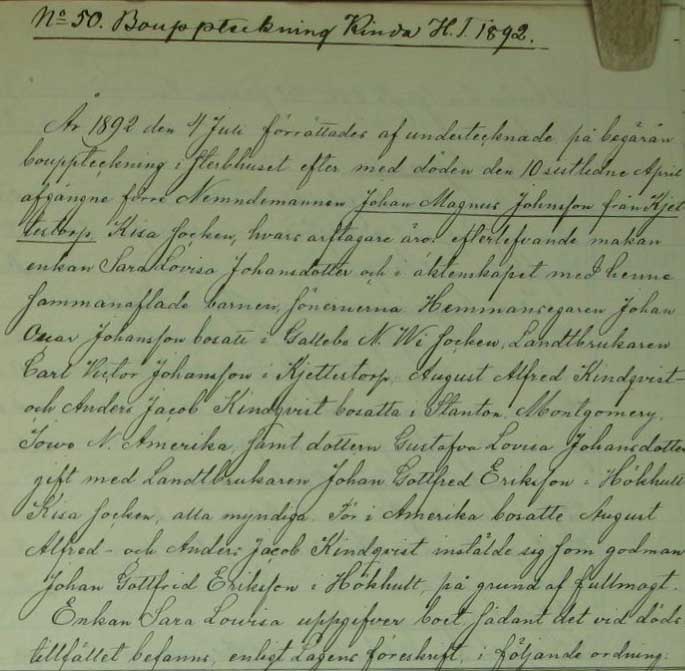 No 50. Bouppteckning Kinda H. T. 1892.
År 1892 den 4 Juli förrättades af undertecknade, på begäran
bouppteckning i sterbhuset efter med döden den 10 sistledne April
afgångne förre Nemndemannen Johan Magnus Johnsson från Kjet-
testorp, Kisa Socken, hvars arftagare äro: efterlefvande makan
enkan Sara Lovisa Johansdotter och i äktenskapet med henne
sammanaflade barnen, sönernerna Hemmansegaren Johan
Oscar Johansson bosatt i Gallebo N. Wi Socken, Landtbrukaren
Carl Victor Johansson i Kjettestorp, August Alfred Kindqvist-
och Anders Jacob Kindqvist bosatta i Stanton, Montgomery,
Iowo N. Amerika, samt dottern Gustafva Lovisa Johansdotter
gift med Landtbrukaren Johan Gottfred Eriksson i Hökhult
Kisa Socken, alla myndiga. För i Amerika bosatte August
Alfred- och Anders Jacob Kindqvist instälde sig som godman
Johan Gottfrid Eriksson i Hökhult, på grund af fullmagt.
Enkan Sara Lowisa uppgifver boet, sådant det vid döds
tillfället befanns, enligt Lagens föreskrift, i följande ordning: